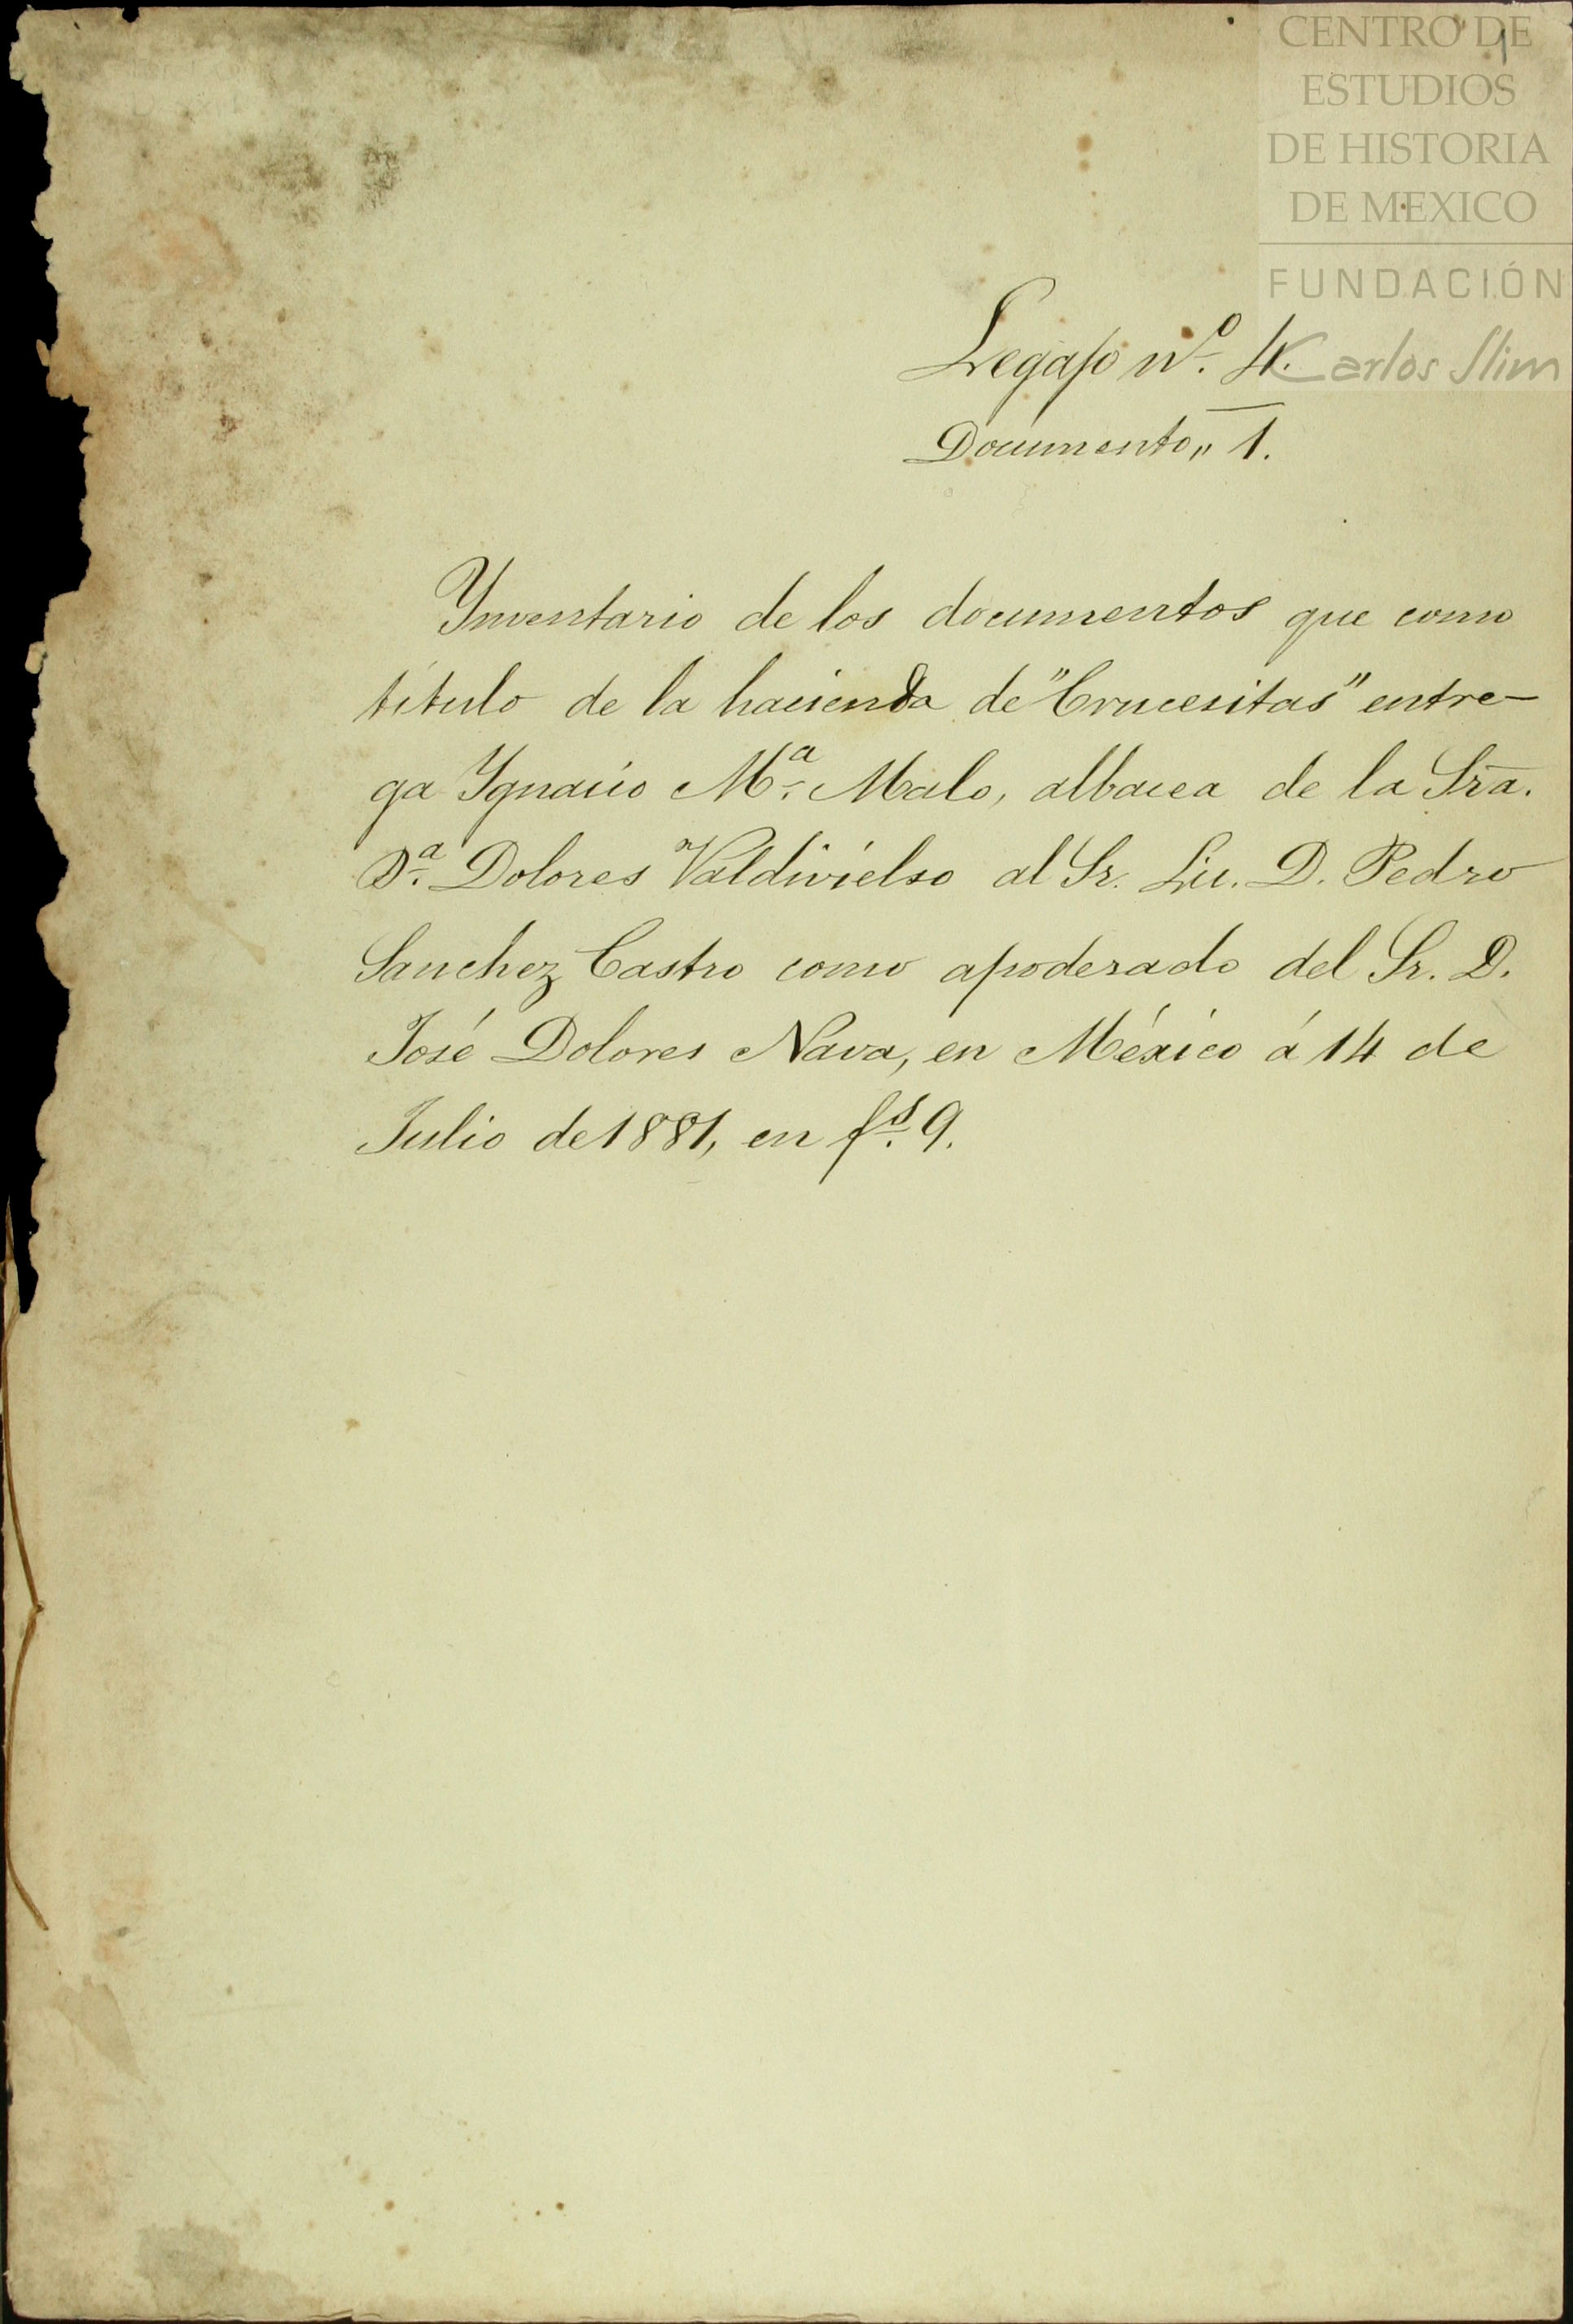 CENTRO DE
ESTUDIOS
DE HISTORIA
DE MEXICO
FUNDACIÓN
Carlos Slim
1
Legajo nº. 4.
Documento,, 1.
Ynventario de los documentos que como
título de la hacienda de "Crucesitas" entre-
ga Ygnacio Mª. Malo, albacea de la Sra.
Dª. Dolores Valdivielso al Sr. Lic. D. Pedro
Sanchez Castro como apoderado del Sr. D.
José Dolores Nava, en México á 14 de
Julio de 1881, en fs. 9.